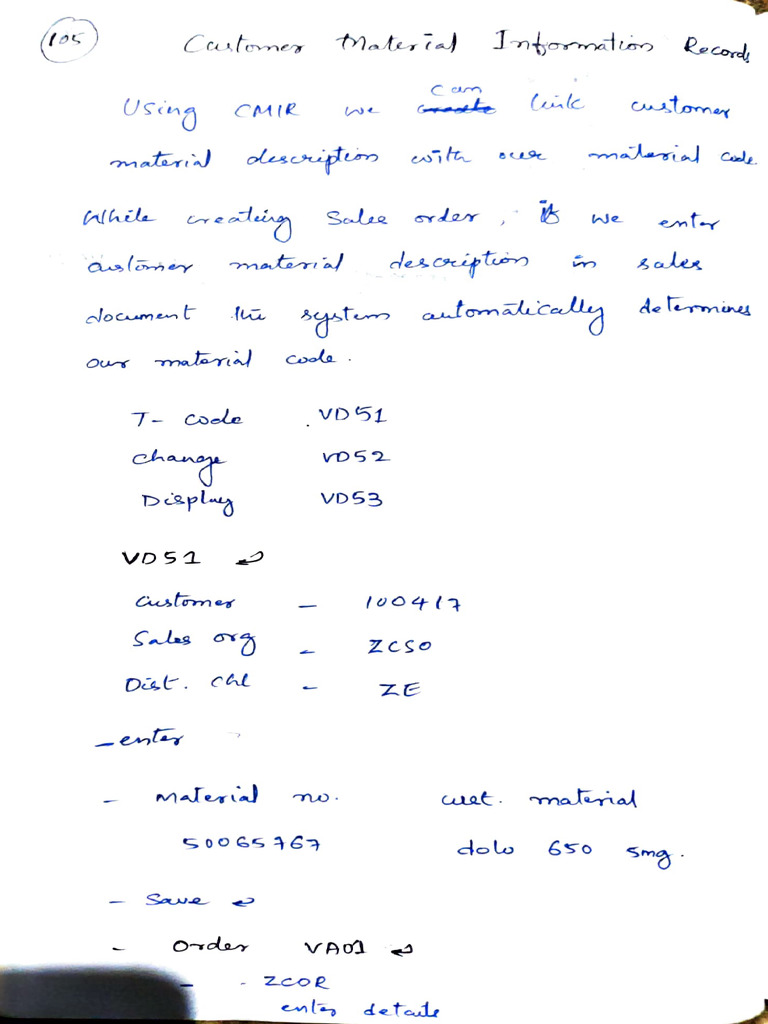 105 Customer Material Information Records
Using CMIR we can link customer
material description with our material code
While creating Sales order, if we enter
customer material description in sales
document the system automatically determines
our material code.
T- code VD51
Change VD52
Display VD53
VD51 ↵
Customer - 100417
Sales org - ZCSO
Dist. Chl - ZE
- enter
- Material no. cust. material
50065767 dolo 650 5mg.
- Save ↵
- Order VA01 ↵
- ZCOR
enter details